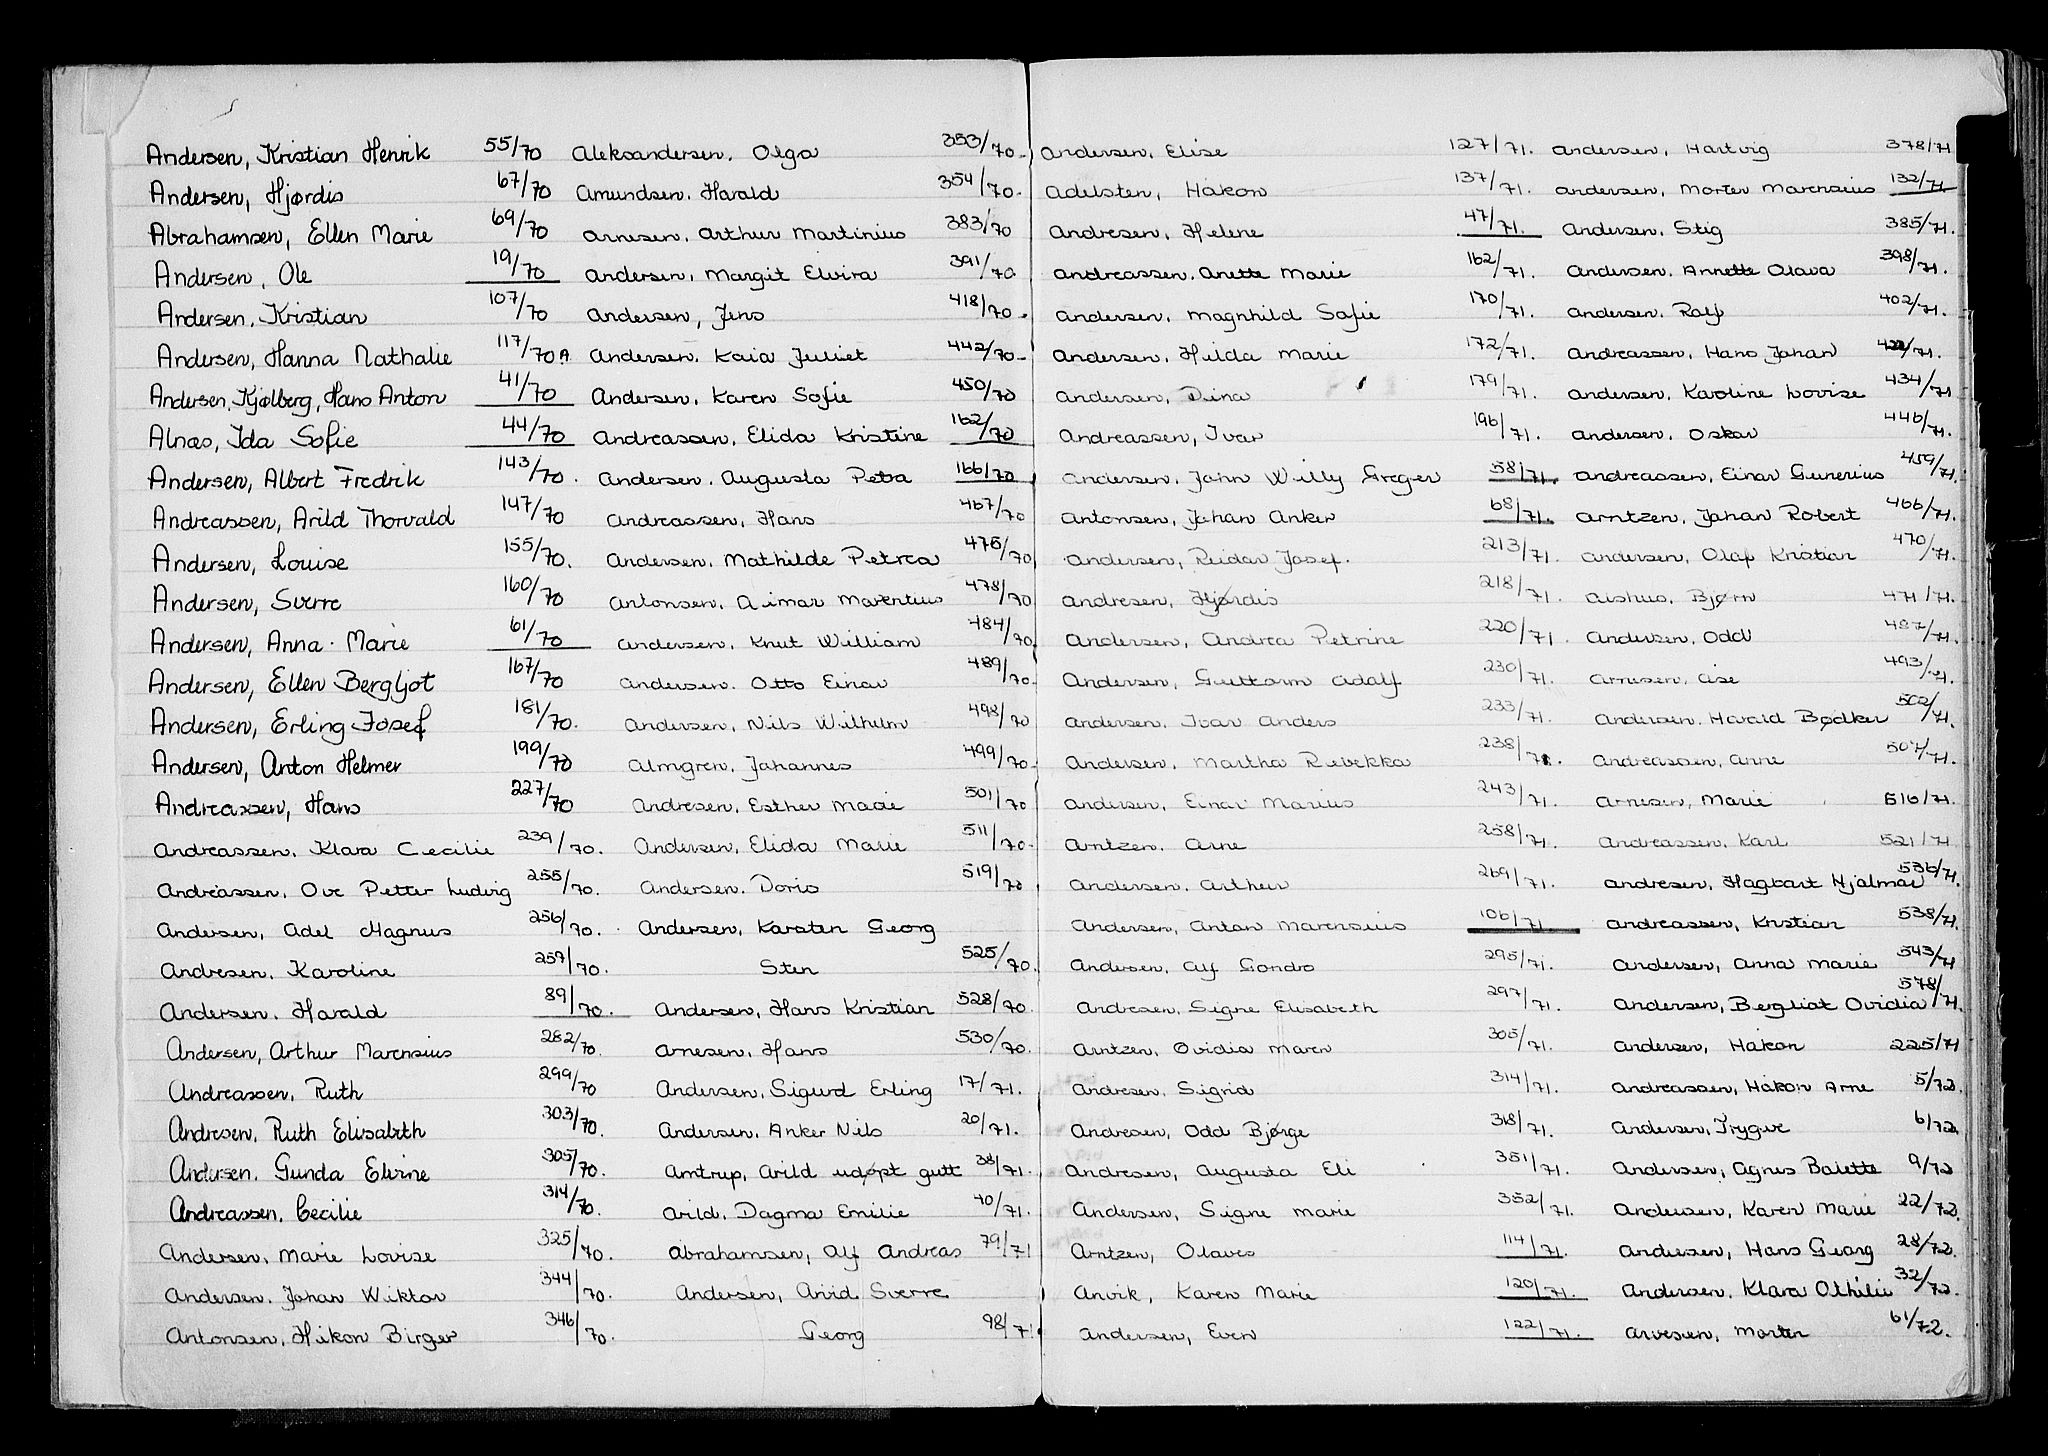 Andersen, Kristian Henrik 55/70
Andersen, Hjørdis 67/70
Abrahamsen, Ellen Marie 69/70
Andersen, Ole 19/70
Andersen, Kristian 107/70
Andersen, Hanna Nathalie 117/70 A
Andersen, Kjølberg, Hans Anton 41/70
Alnæs, Ida Sofie 44/70
Andersen, Albert Fredrik 143/70.
Andreassen, Arild Thorvald 147/70
Andersen, Louise 155/70.
Andersen, Sverre 160/70
Andersen, Anna Marie 61/70
Andersen, Ellen Bergljot 167/70
Andersen, Erling Josef 181/70.
Andersen, Anton Helmer 199/70
Andreassen, Hans 227/70
Andreassen, Klara Cecilie 239/70.
Andreassen, Ove Petter Ludvig 255/70.
Andersen, Adel Magnus 256/70.
Andresen, Karoline 257/70.
Andersen, Harald 89/70.
Andersen, Arthur Marensius 282/70.
Andreassen, Ruth 299/70
Andresen, Ruth Elisabeth 303/70.
Andersen, Gunda Elvine 305/70.
Andreassen, Cecilie 314/70.
Andersen, Marie Lovise 325/70.
Andersen, Johan Wiktor 344/70.
Antonsen, Håkon Birger 346/70.
Aleksandersen, Olga 353/70.
Amundsen, Harald 354/70.
Arnesen, Arthur Martinius 383/70
Andersen, Margit Elvira 391/70
Andersen, Jens 418/70.
Andersen, Kaia Juliet 442/70
Andersen, Karen Sofie 450/70
Andreassen, Elida Kristine 162/70
Andersen, Augusta Petra 166/70
Andreassen, Hans 467/70
Andersen, Mathilde Petrea 476/70
Antonsen, Marentius 478/70
Andersen, Knut William 484/70.
Andersen, Otto Einar 489/70.
Andersen, Nils Wilhelm 498/70
Almgren, Johannes 499/70.
Andresen, Esther Marie 501/70
Andersen, Elida Marie 511/70.
Andersen, Doris 519/70
Andersen, Karsten Georg
Sten 525/70.
Andersen, Hans Kristian 528/70.
Arnesen, Hans 530/70.
Andersen, Sigurd Erling 17/71.
Andersen, Anker Nils 20/71.
Arntrup, Arild udøpt gutt 38/71.
Arild, Dagma Emilie 40/71.
Abrahamsen, Alf Andreas 79/71
Andersen, Arvid Sverre
Georg 98/71.
Andersen, Elise 127/71.
Adelsten, Håkon 137/71.
Andresen, Helene 47/71.
Andreassen, Anette Marie 162/71.
Andersen, Magnhild Sofie 170/71.
Andersen, Hilda Marie 172/71.
Andersen, Dina 179/71.
Andreassen, Ivar 196/71.
Andersen, John Willy Greger 58/71.
Antonsen, Johan Anker 68/71.
Andersen, Reidar Josef. 213/71.
Andresen, Hjørdis 218/71.
Andersen, Andrea Petrine 220/71
Andersen, Guttorm Adolf 230/71.
Andersen, Ivar Anders 233/71.
Andersen, Martha Rebekka 238/71.
Andersen, Einar Marius 243/71.
Arntzen, Arne 258/71.
Andersen, Arthur 269/71.
Andersen, Anton Marensius 106/71
Andersen, Alf Gondro 295/71.
Andresen, Signe Elisabeth 297/71.
Arntzen, Ovidia Maren 305/71.
Andresen, Sigrid 314/71.
Andresen, Odd Bjørge 318/71.
Andresen, Augusta Eli 351/71.
Andersen, Signe Marie 352/71.
Arntzen, Olaves 114/71.
Anvik, Karen Marie 120/71.
Andersen, Even 122/71.
Andersen, Hartvig 378/71
Andersen, Morten Marensius 132/71
Andersen, Stig 385/71.
Andersen, Annette Olava 398/71.
Andersen, Rolf 402/71.
Andreassen, Hans Johan
Andersen, Karoline Lovise 434/71
Andersen, Oskar 446/71.
Andreassen, Einar Gunerius 459/71.
Arntzen, Johan Robert 466/71.
Andersen, Olaf Kristian 470/71.
Aishus, Bjørn 471/71.
Andersen, Odd 487/71.
Arnesen, Åse 493/71.
Andersen, Harald Bødker 502/71.
Andreassen, Anne 507/71.
Arnesen, Marie 516/71.
Andreassen, Karl 521/71
Andresen, Hagbart Hjalmar 536/71.
Andreassen, Kristian 538/71.
Andersen, Anna Marie 543/71
Andersen, Bergliot Ovidia 578/71.
Andersen, Håkon 225/71
Andreassen, Håkon Arne 5/72.
Andersen, Trygve 6/72.
Andersen, Agnes Bolette 9/72
Andersen, Karen Marie 22/72.
Andersen, Hans Georg 28/72.
Andersen, Klara Othilie 32/72.
Arvesen, Morten 61/72.